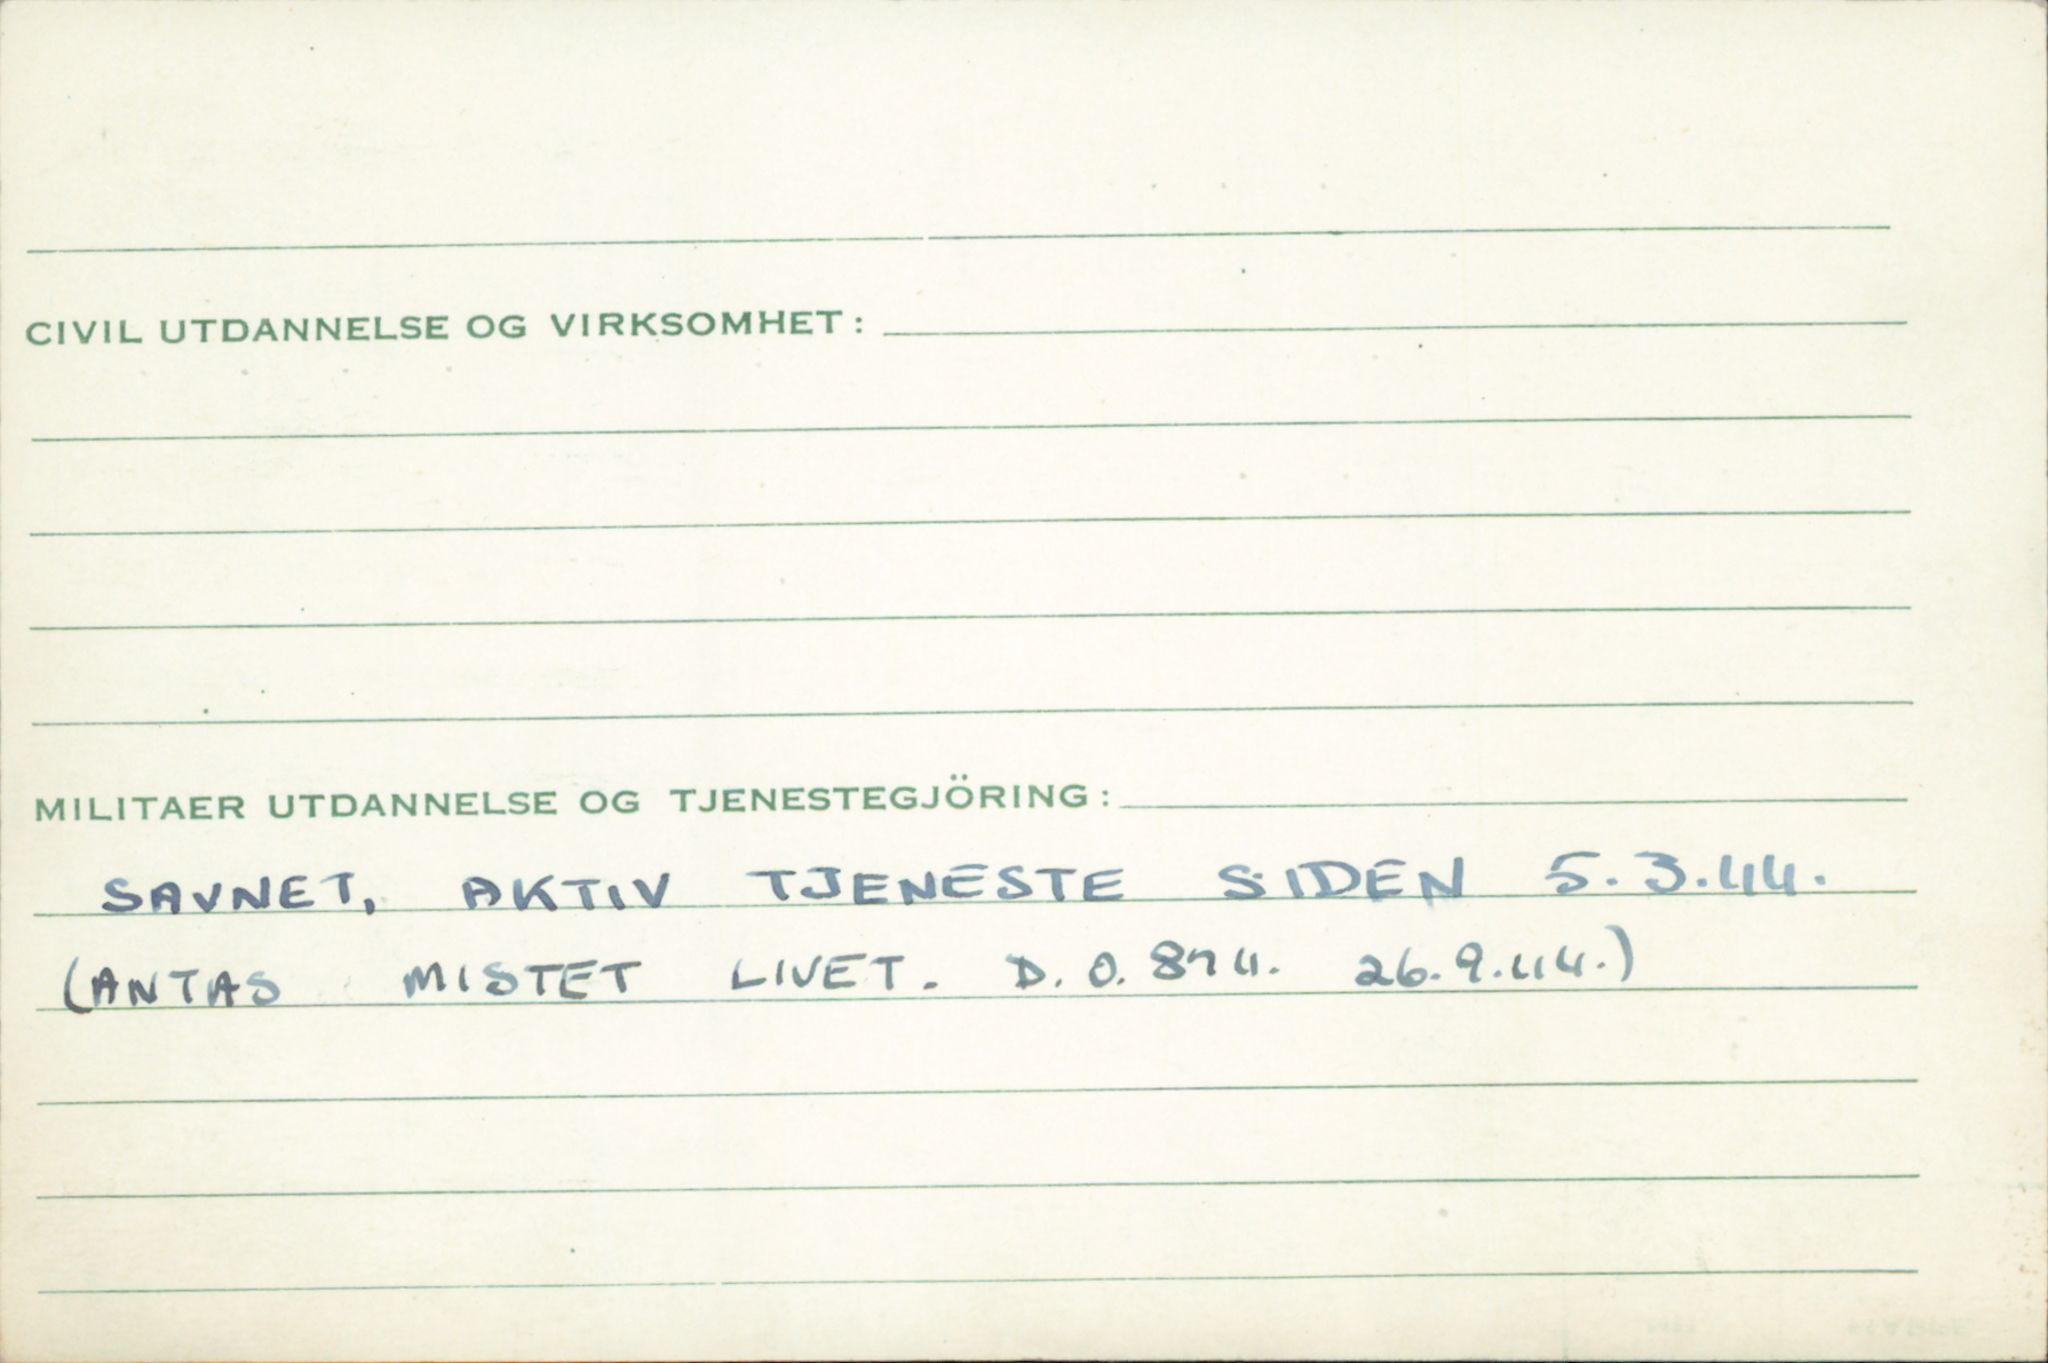 CIVIL UTDANNELSE OG VIRKSOMHET:
MILITAER UTDANNELSE OG TJENESTEGJÖRING:
SAVNET, AKTIV TJENESTE SIDEN 5.3.44.
(ANTAS MISTET LIVET. D.O. 874. 26.9.44.)